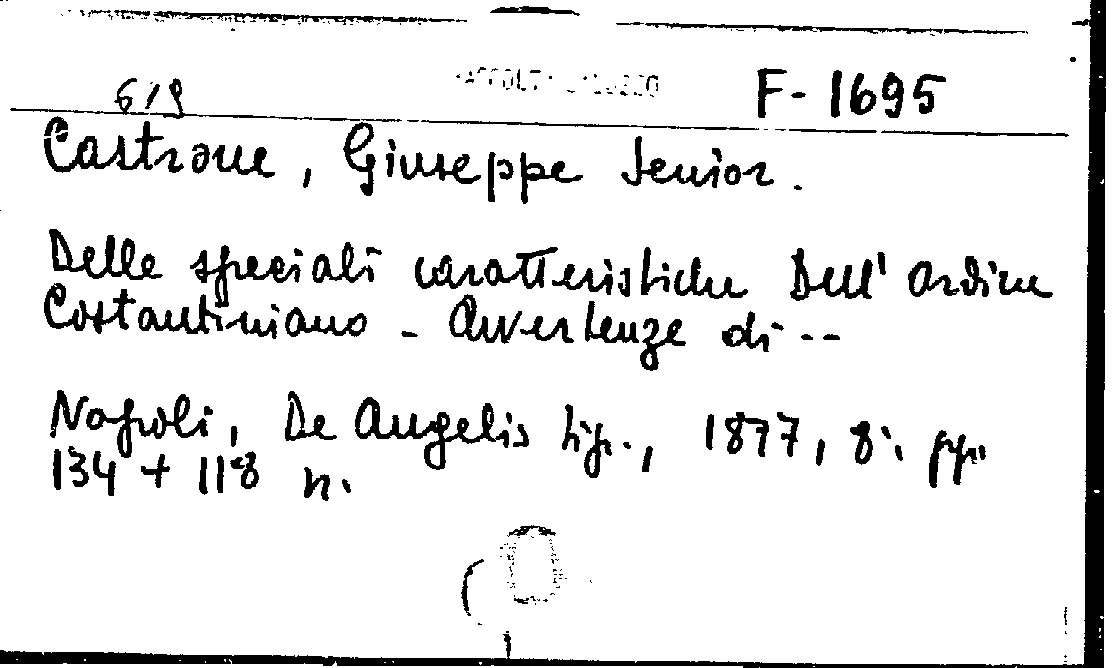 619 F-1695
Castrone, Giuseppe Senior.
Delle speciali caratteristiche Dell'Ordine
Costantiniano - Avvertenze di --
Napoli, De Angelis tip., 1877, 8°. pp.
134 + 118 n.